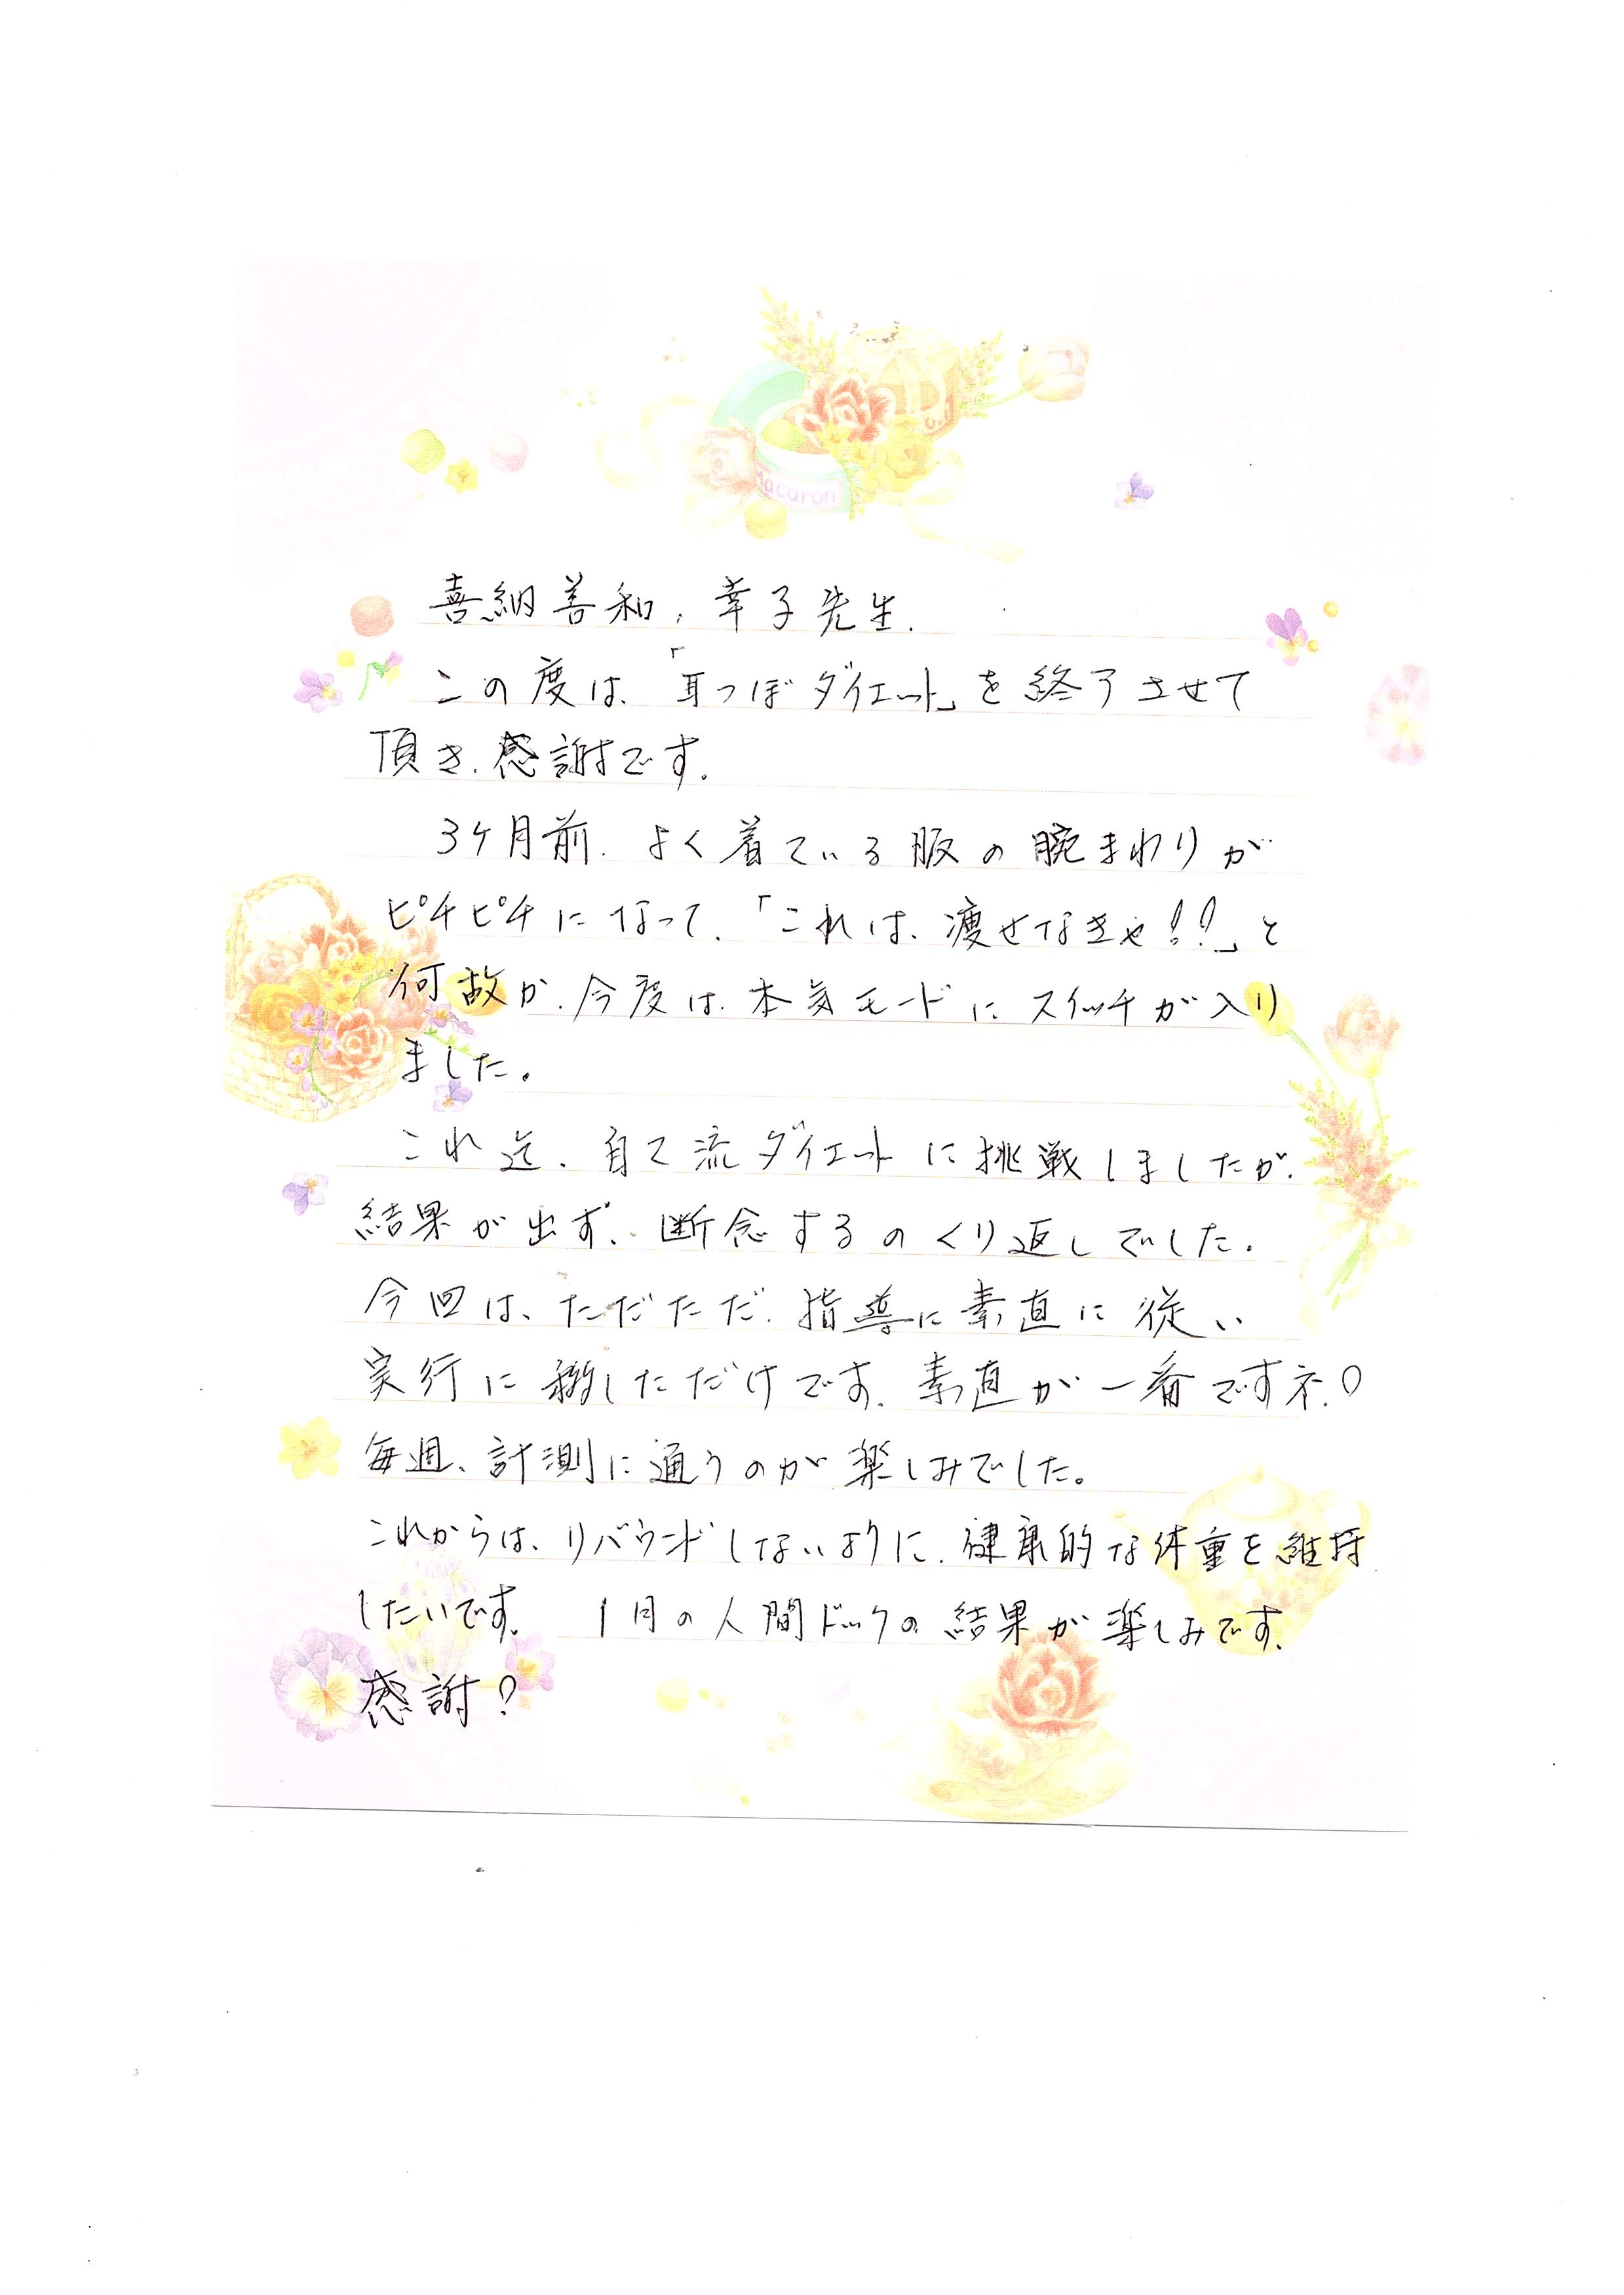 macaron
喜納善和、幸子先生.
この度は、「耳つぼダイエット」を終了させて
頂き、感謝です。
3ヶ月前、よく着ている服の腕まわりが
ピチピチになって、「これは、痩せなきゃ!!」と
何故か、今度は、本気モードにスイッチが入り
ました。
これ迄、自己流ダイエットに挑戦しましたが、
結果が出ず、断念するのくり返しでした。
今回は、ただただ、指導に素直に従い
実行に移しただけです。素直が一番ですネ!
毎週、計測に通うのが楽しみでした。
これからは、リバウンドしないように、健康的な体重を維持
したいです。 1月の人間ドックの結果が楽しみです。
感謝!